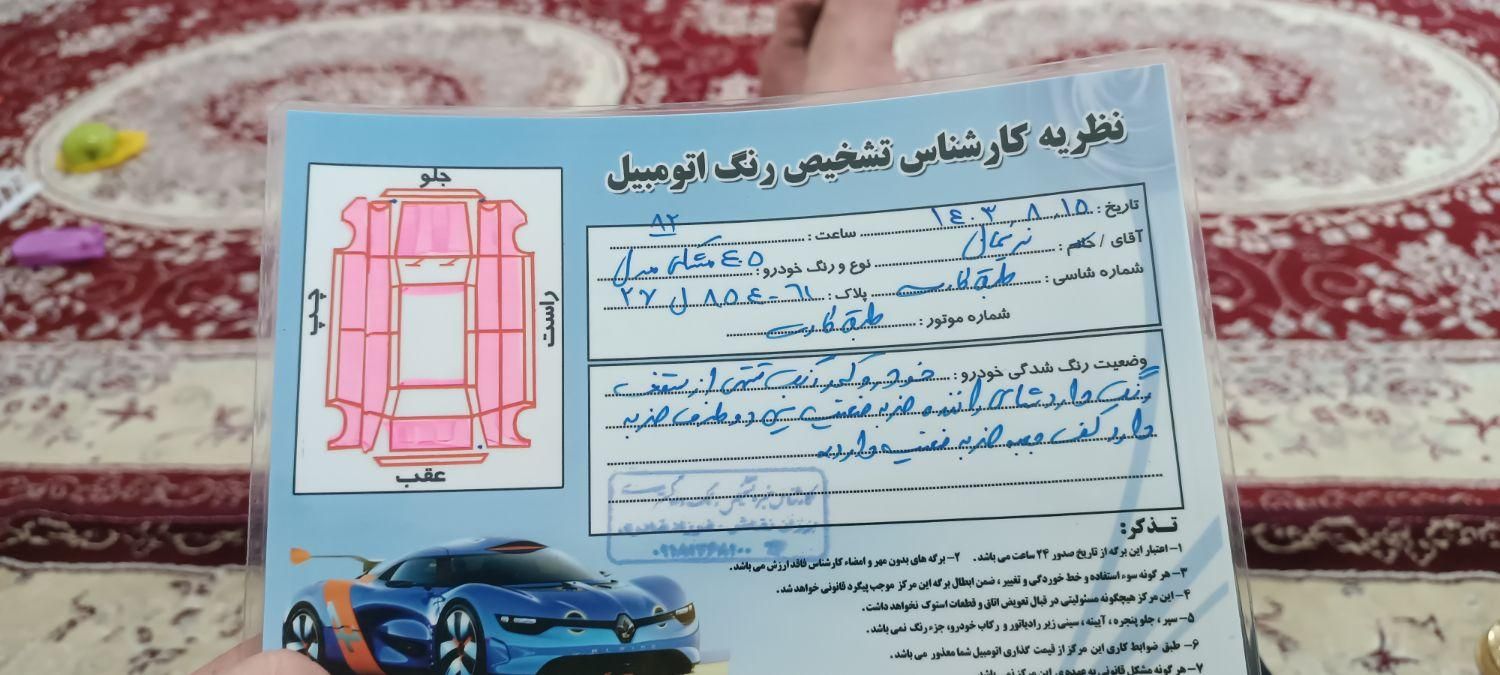 نظریه کارشناس تشخیص رنگ اتومبیل
جلو
چپ
راست
عقب
تاریخ : ۱۴۰۳٫۸٫۱۵ ساعت :
آقای / خانم : نریمانی نوع و رنگ خودرو : ۴۰۵ مشکی مدل ۸۲
شماره شاسی : طبق کارت پلاک : ۶۱ - ۸۵۴ ل ۲۷
شماره موتور : طبق کارت
وضعیت رنگ شدگی خودرو : خودرو از سقف
رنگ دارد شاسی راننده ضربه خفیف سینی دو طرف ضربه
دارد کف جعبه ضربه خفیف دارد
تذکر:
۱- اعتبار این برگه از تاریخ صدور ۲۴ ساعت می باشد. ۲- برگه های بدون مهر و امضاء کارشناس فاقد ارزش می باشد.
۳- هر گونه سوء استفاده و خط خوردگی و تغییر ، ضمن ابطال برگه این مرکز موجب پیگرد قانونی خواهد شد.
۴- این مرکز هیچگونه مسئولیتی در قبال تعویض اتاق و قطعات استوک نخواهد داشت.
۵- سپر ، جلو پنجره ، آیینه ، سینی زیر رادیاتور و رکاب خودرو، جزء رنگ نمی باشد.
۶- طبق ضوابط کاری این مرکز از قیمت گذاری اتومبیل شما معذور می باشد.
۷- هر گونه مشکل قانونی به عهده ی این مرکز نمی باشد.